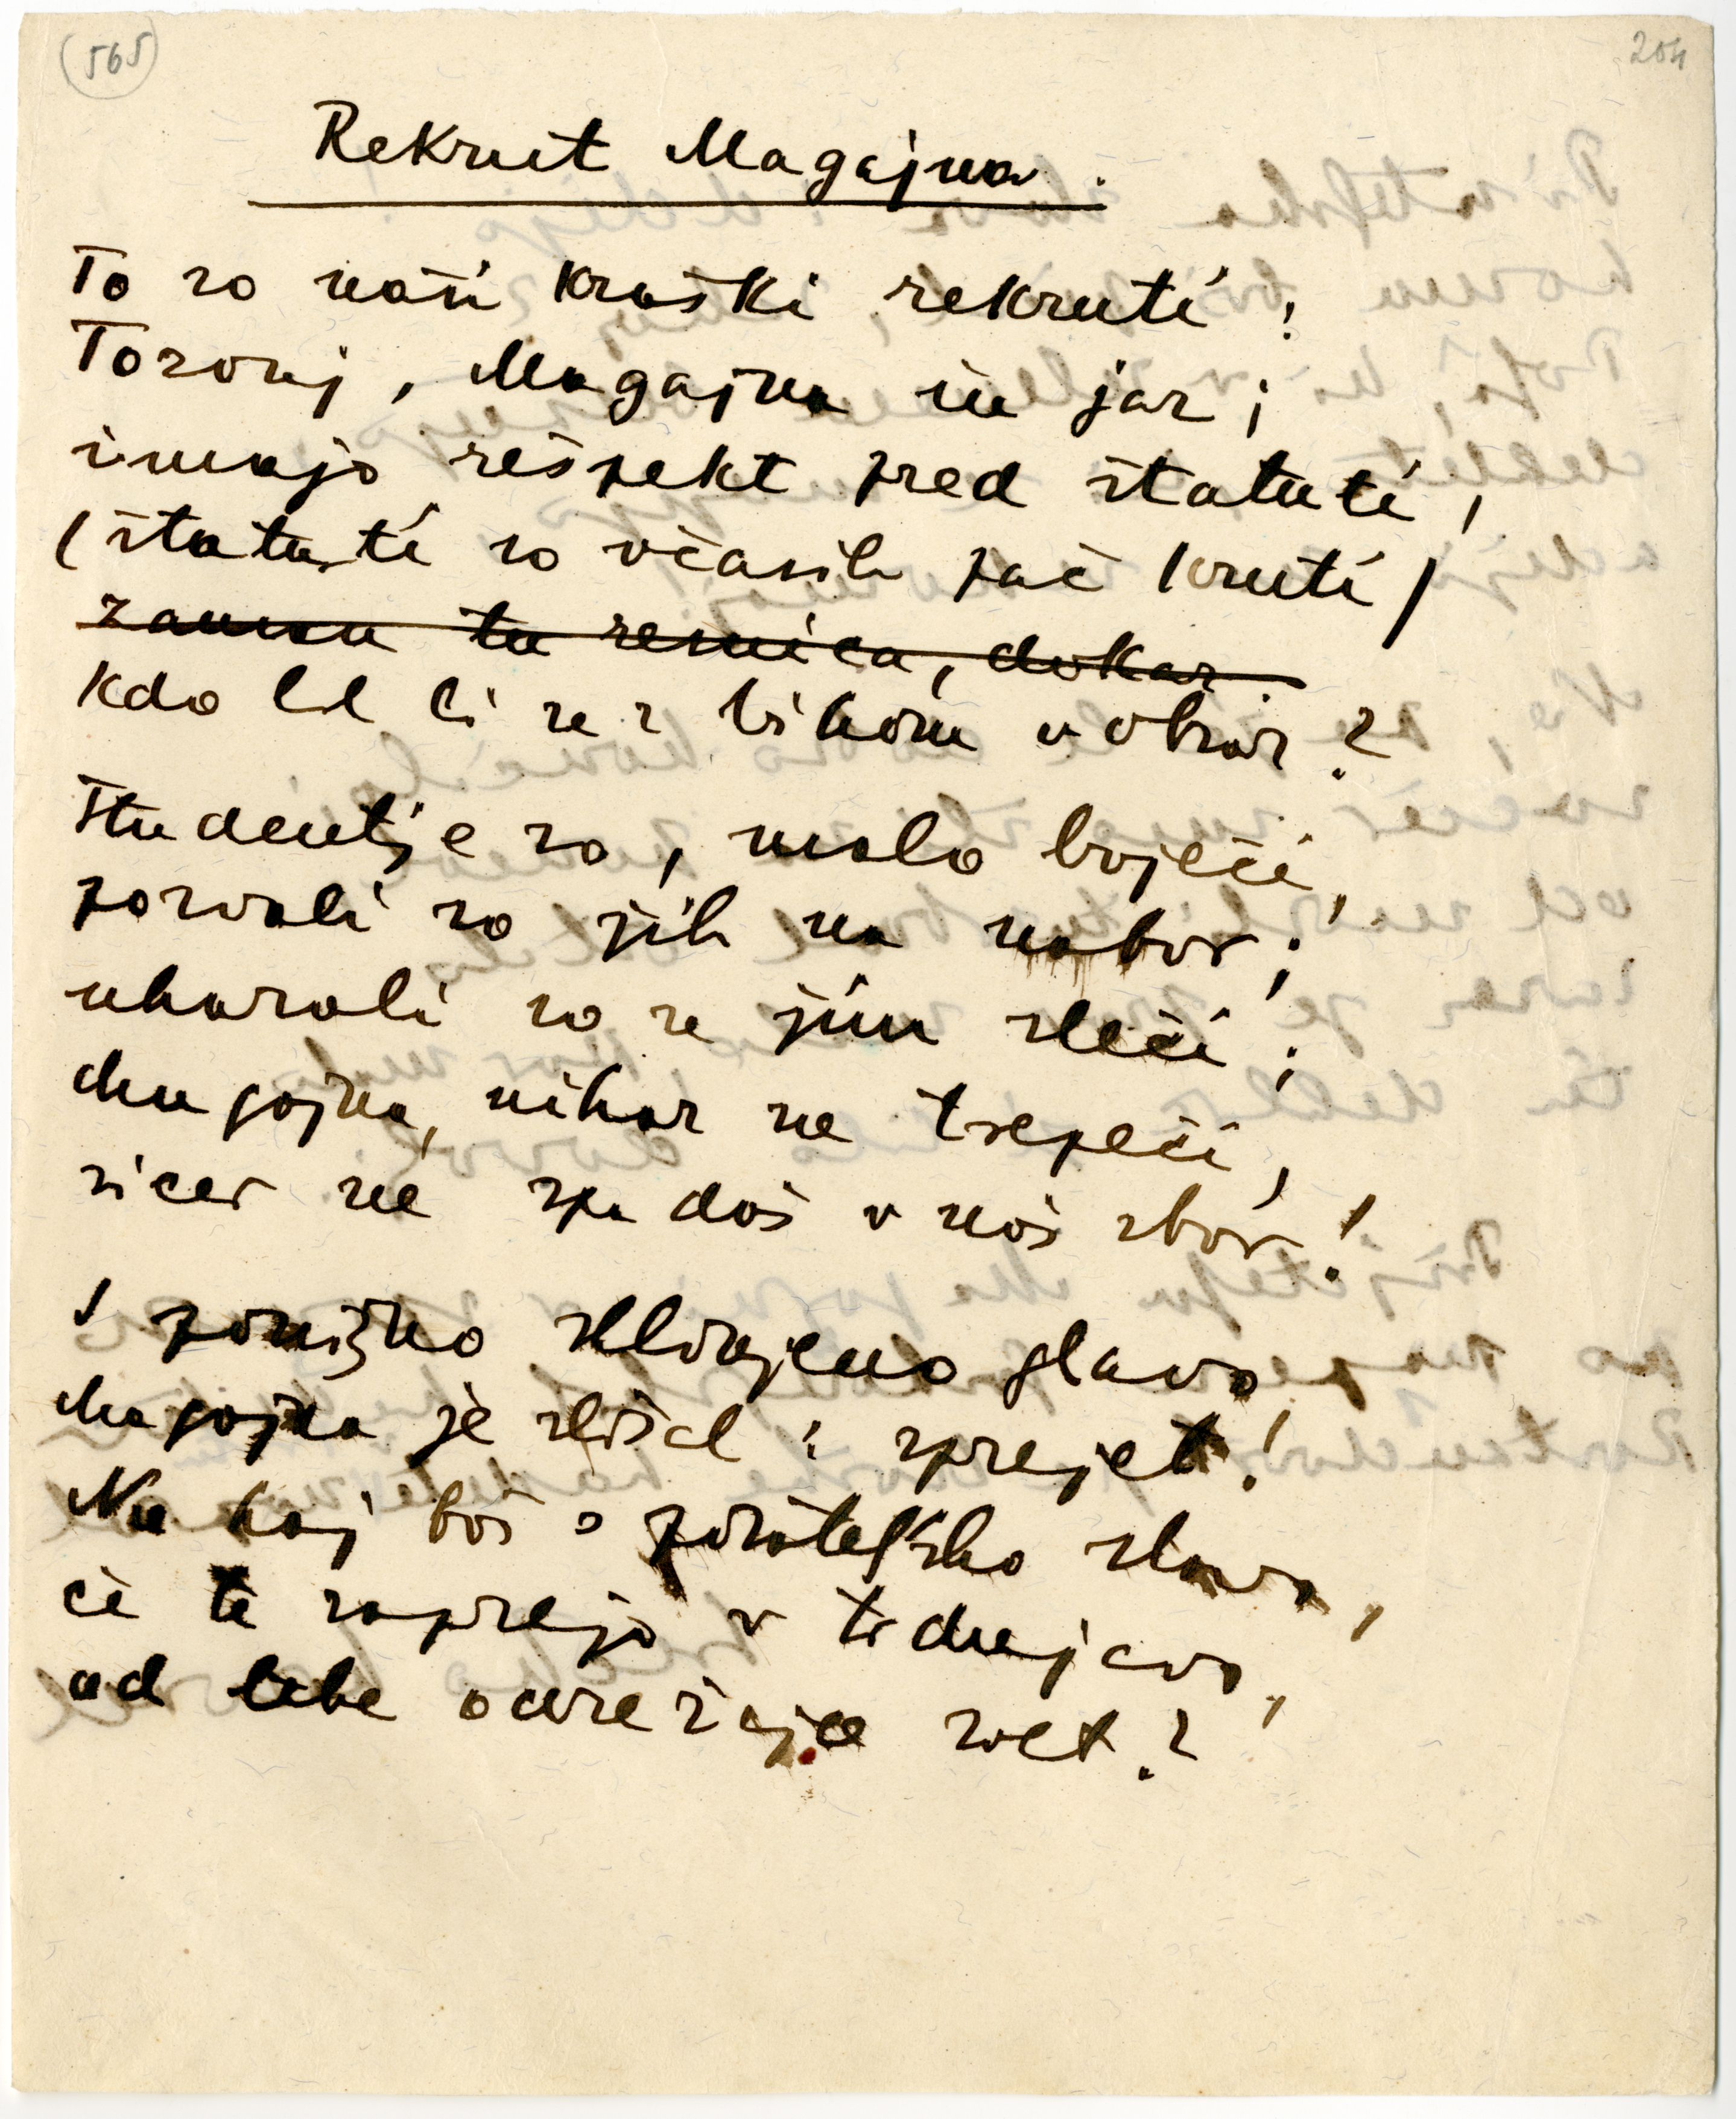 (565)
204
Rekrut Magajna.
To so naši kraški rekruti:
Tozonj, Magajna in jaz;
imajo rešpekt pred štatuti,
(štatuti so včasih pač kruti)
zaman tu resnica, dokaz.
kdo bil bi se z bikom v obraz?
Študentje so, malo boječi,
pozvali so jih na nabor;
ukazali so se jim sleči;
Magajna, nikar ne trepeči,
sicer ne spadaš v naš zbor!
S ponižno sklonjeno glavo
Magajna je slišal: sprejet!
Na kaj boš s pisateljsko slavo,
če te zaprejo v trdnjavo,
od tebe odrezaje svet?